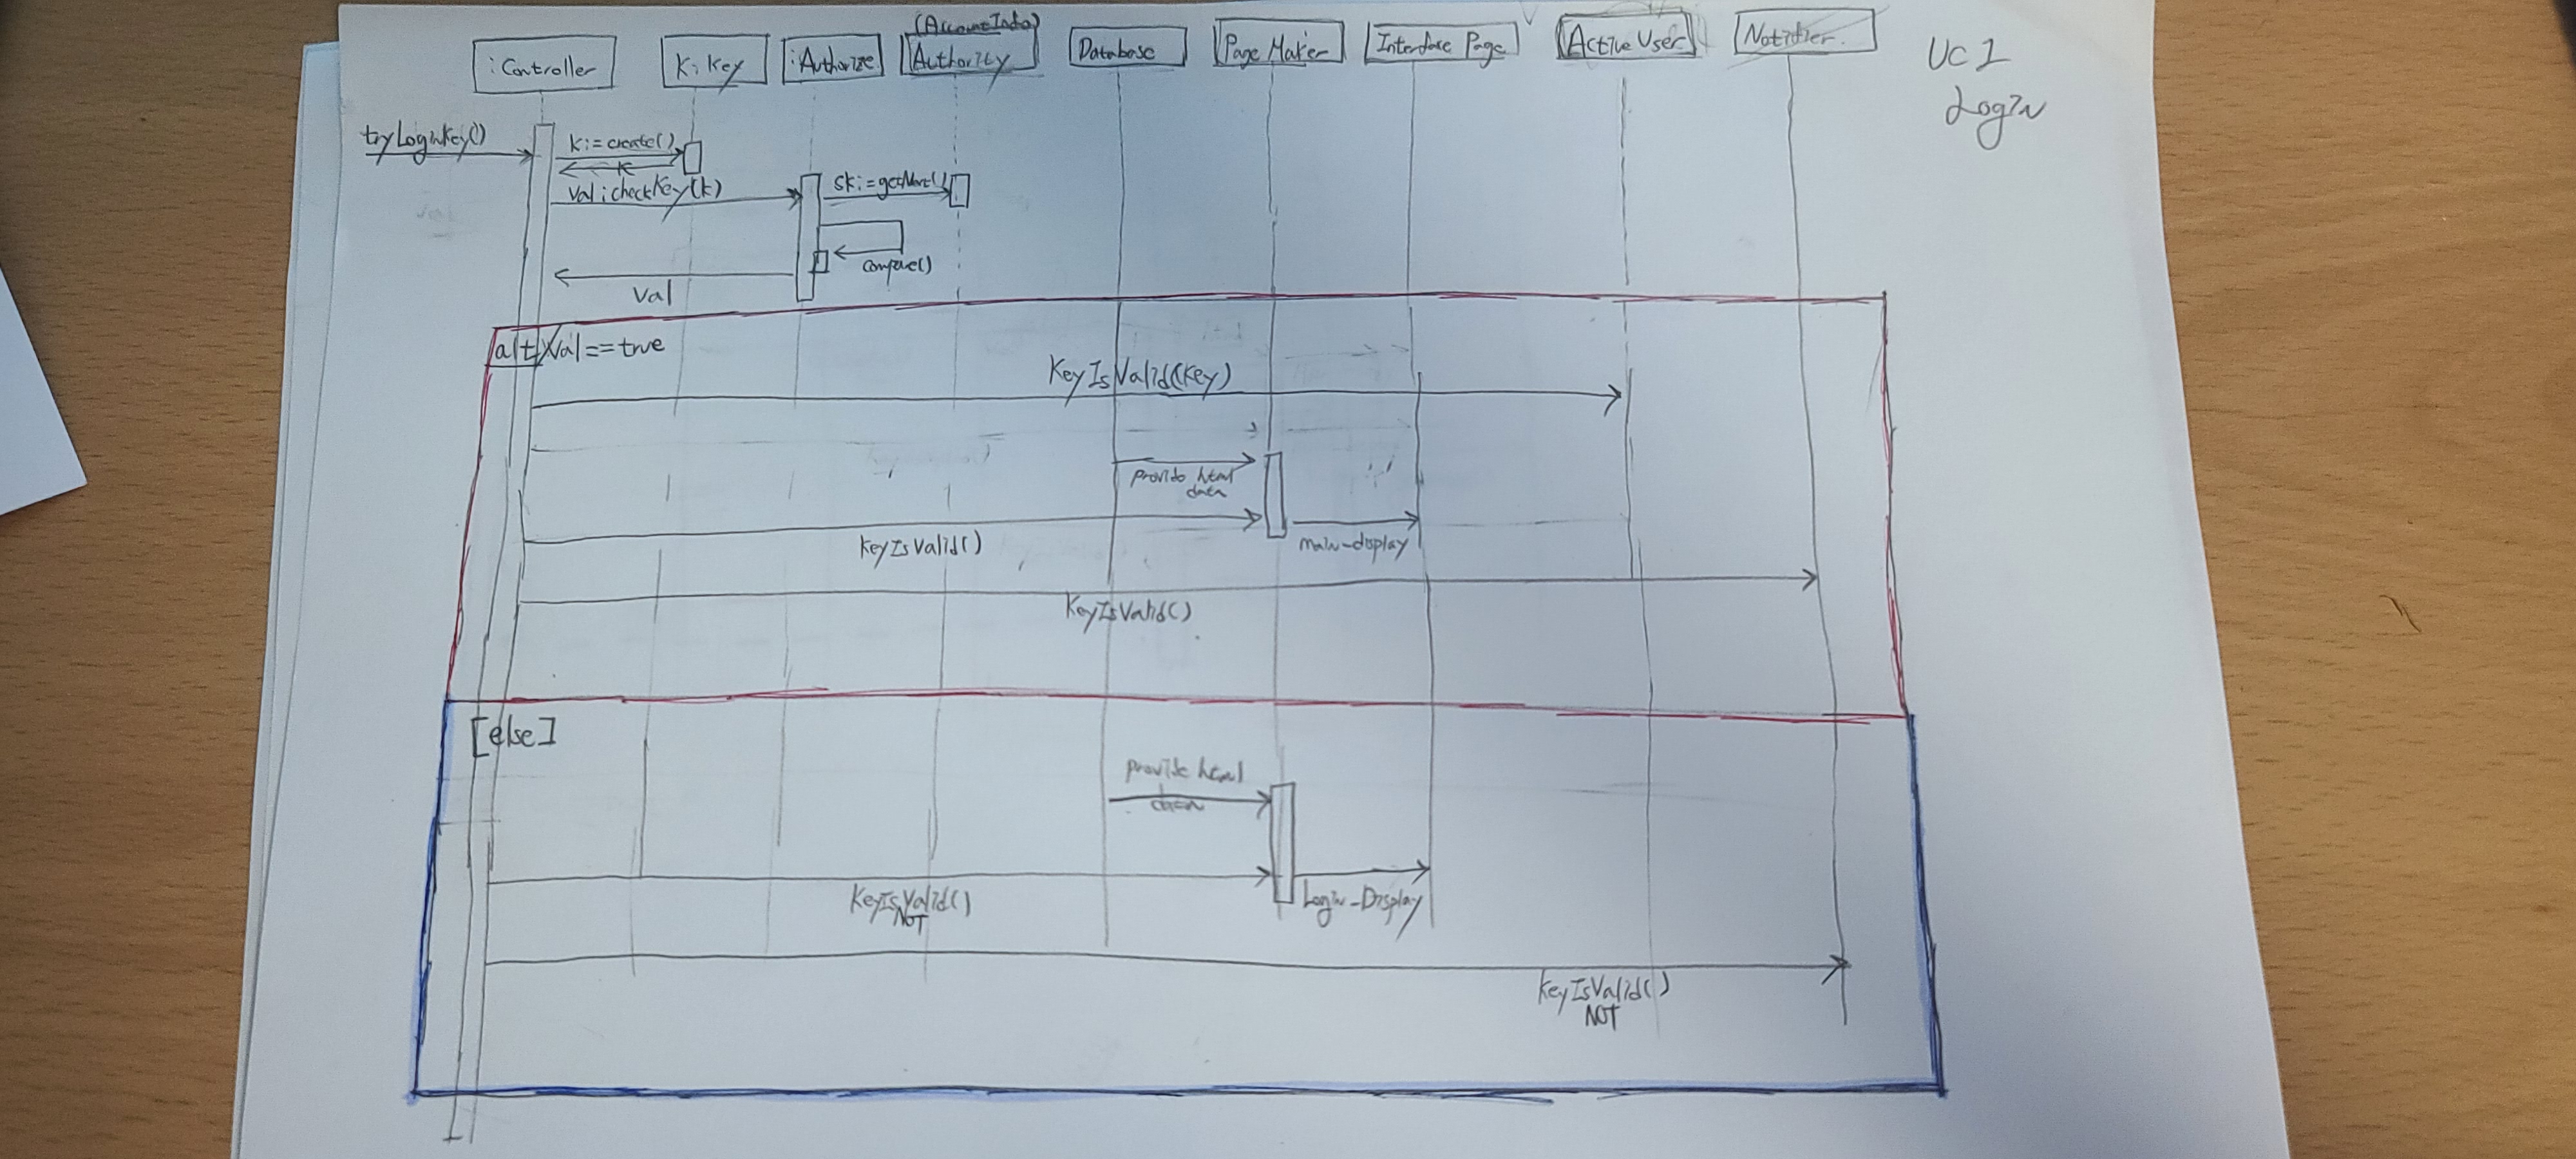 (Account Info)
:Controller
K: Key
:Authorize
Authority
Database
Page Maker
Interface Page
Active User
Notifier
UC 1
Login
tryLoginKey()
K:=create()
K
val:checkKey(k)
sk:=getNext()
compare()
val
alt
Val==true
KeyIsValid(Key)
provide html
data
KeyIsValid()
main-display
KeyIsValid()
[else]
provide html
data
KeyIsValid()
NOT
Login-Display
KeyIsValid()
NOT